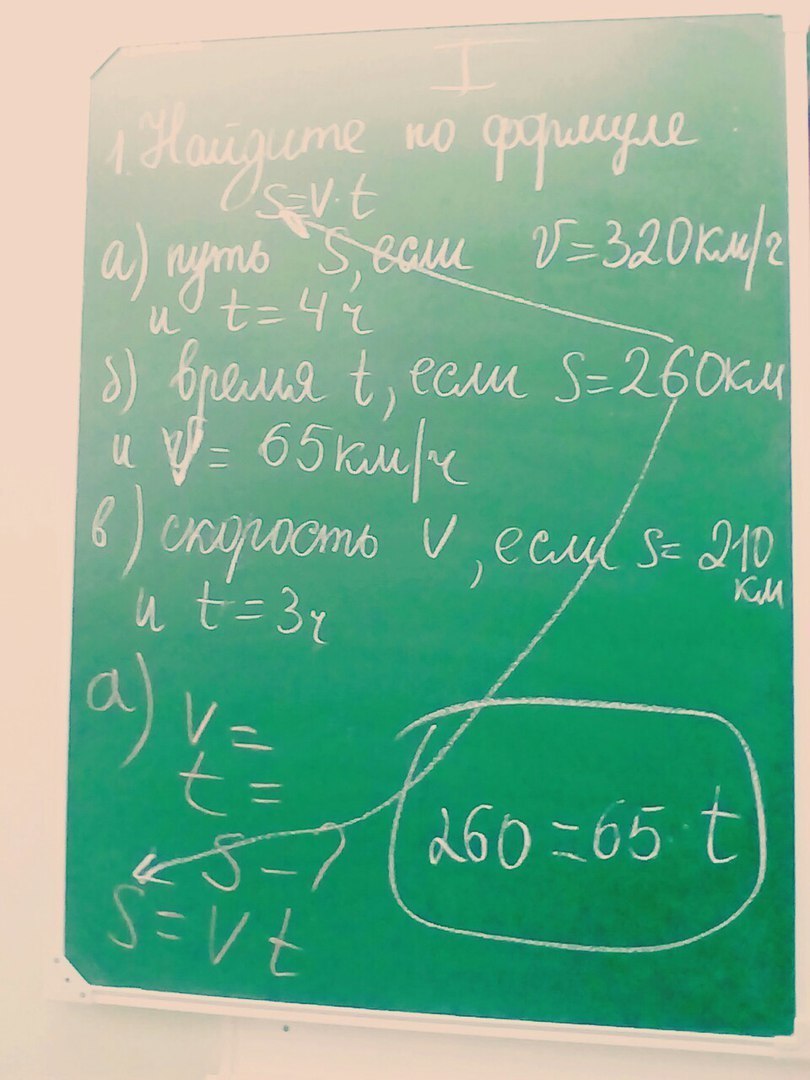 I
1. Найдите по формуле
S=V·t
а) путь S, если v=320км/ч
и t=4ч
б) время t, если S=260км
и V= 65км/ч
в) скорость V, если s= 210
км
и t=3ч
а) V=
t=
S-?
S=Vt
260=65·t